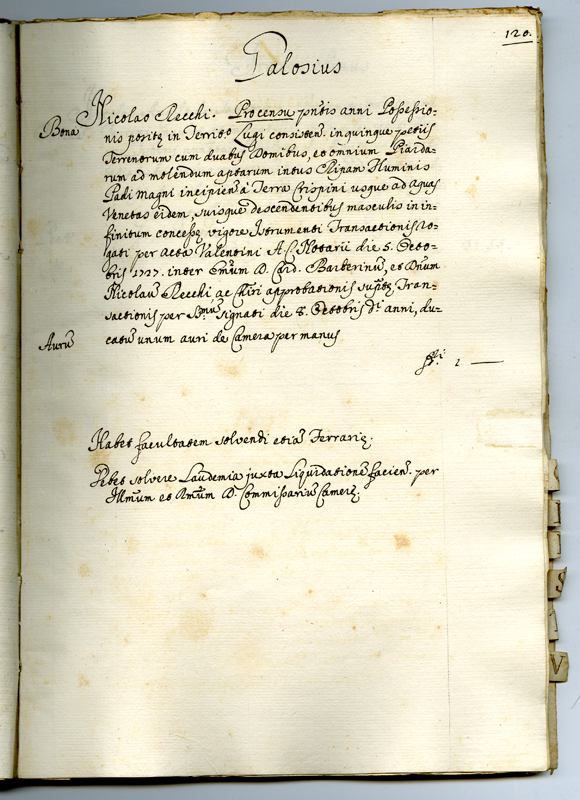 120.
Palosius
Bona
Nicolao Recchi. Pro censu pntis anni Possessio-
nis positȩ in Territo Lugi consisten. in quinque petiis
Terrenorum cum duabus Domibus, et omnium
rum ad molendum aptarum intus Ripam Fluminis
Padi Magni incipien à Terra Crispini usque ad aquas
Venetas eidem, suisque descendentibus masculis in in-
finitum concessȩ vigore Istrumenti Transactionis Ro-
gati per acta Valentini A.C. Notarii die 5. Octo-
bris 1727. inter Emum D. Card. Barberinu, et Dnum
Nicolau Recchi, ac Chiri approbationis suptȩ Tran-
sactionis per Smu signati die 8. Octobris di anni, du-
Auru
catu unum auri de Camera per manus
1 —
Habet facultatem solvendi etia Ferrariȩ.
Debet solvere Laudemia juxta Liquidatione facien. per
Illmum et Rmum D. Commissariu Camerȩ.